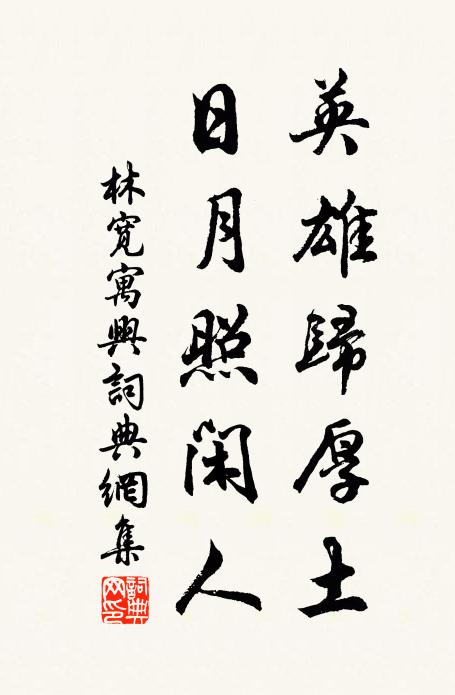 英雄歸厚土
日月照閑人
林寬寓興詞典網集
詞典网印